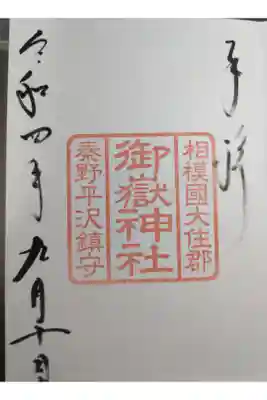 相模國大住郡
御嶽神社
秦野平沢鎮守
令和四年 九月十日